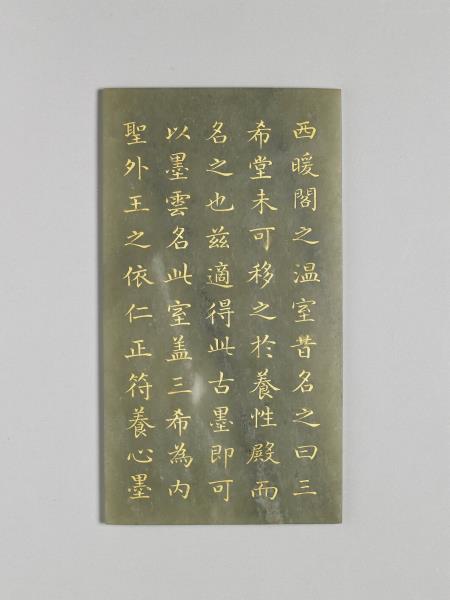 西暖閣之温室昔名之曰三
希堂未可移之於養性殿而
名之也茲適得此古墨即可
以墨雲名此室盖三希為内
聖外王之依仁正符養心墨